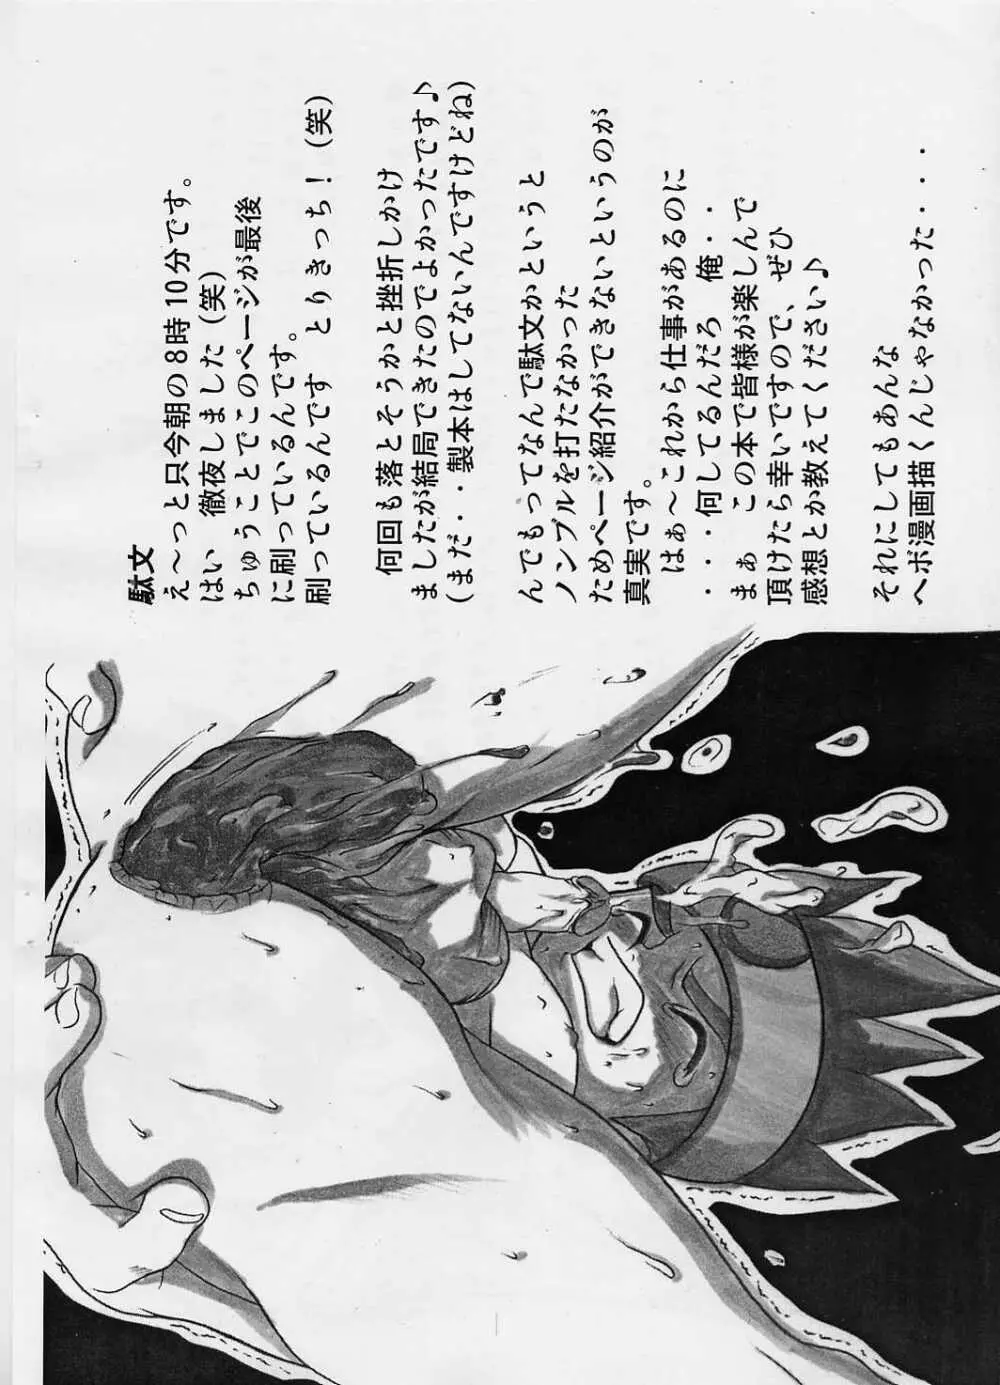 駄文
え～っと只今朝の８時１０分です。
はい　徹夜しました（笑）
ちゅうことでこのページが最後
に刷っているんです。
刷っているんです　とりきっち！（笑）
何回も落とそうかと挫折しかけ
ましたが結局できたのでよかったです♪
（まだ・・製本はしてないんですけどね）
んでもってなんで駄文かというと
ノンブルを打たなかった
ためページ紹介ができないというのが
真実です。
はぁ～これから仕事があるのに
・・・何してるんだろ　俺・・
まぁ　この本で皆様が楽しんで
頂けたら幸いですので、ぜひ
感想とか教えてください♪
それにしてもあんな
ヘボ漫画描くんじゃなかった・・・・